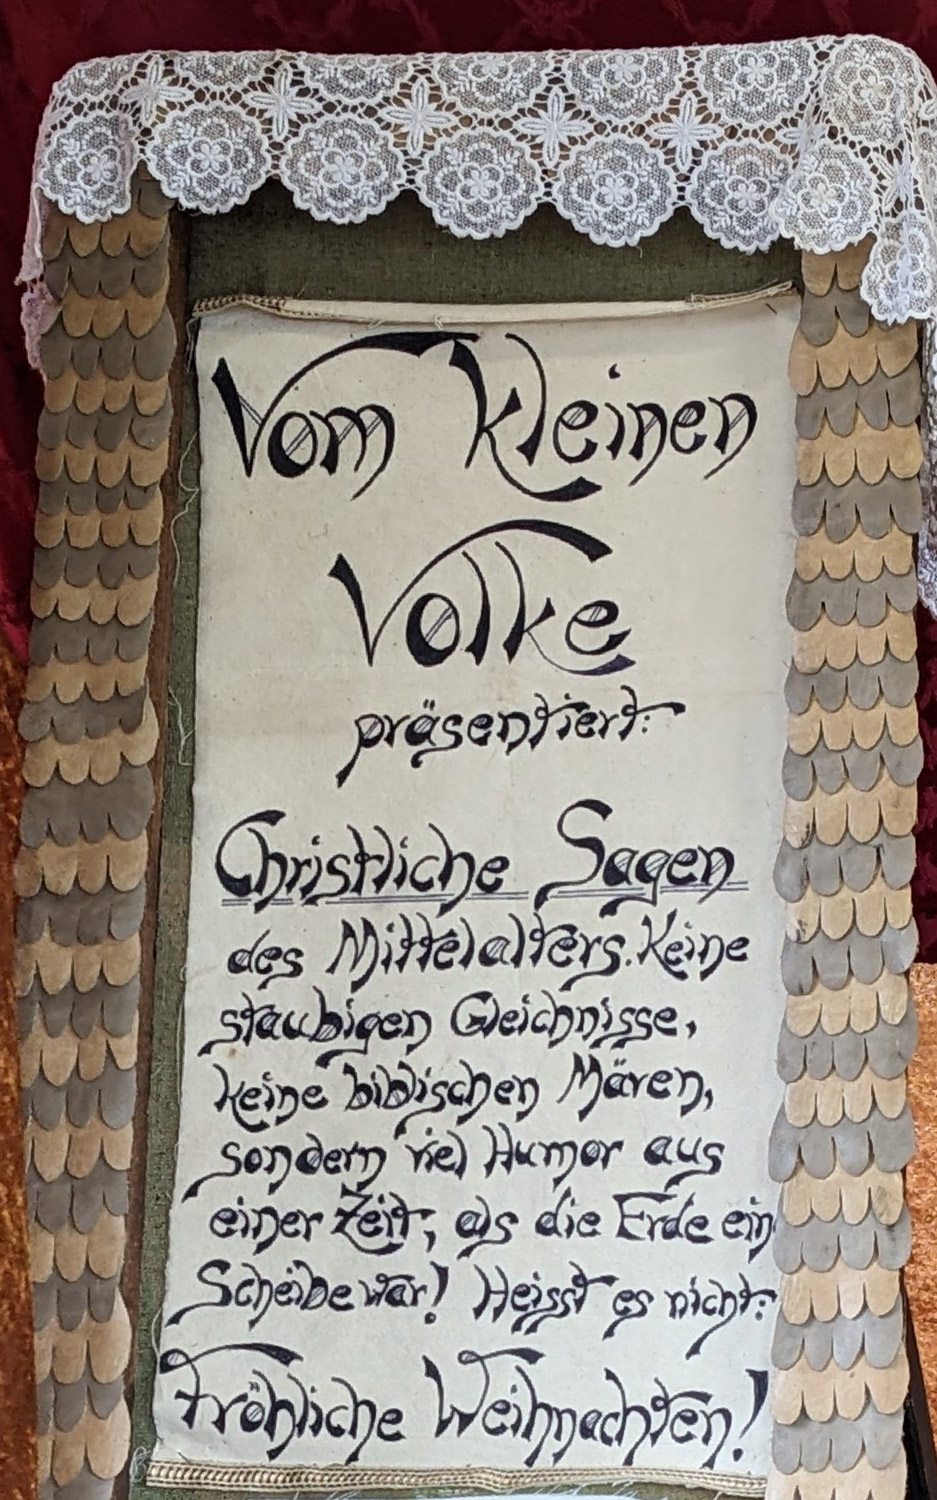 Vom kleinen
Volke
präsentiert:
Christliche Sagen
des Mittelalters. Keine
staubigen Gleichnisse,
keine biblischen Mären,
sondern viel Humor aus
einer Zeit, als die Erde ein
Scheibe war! Heisst es nicht:
Fröhliche Weihnachten!